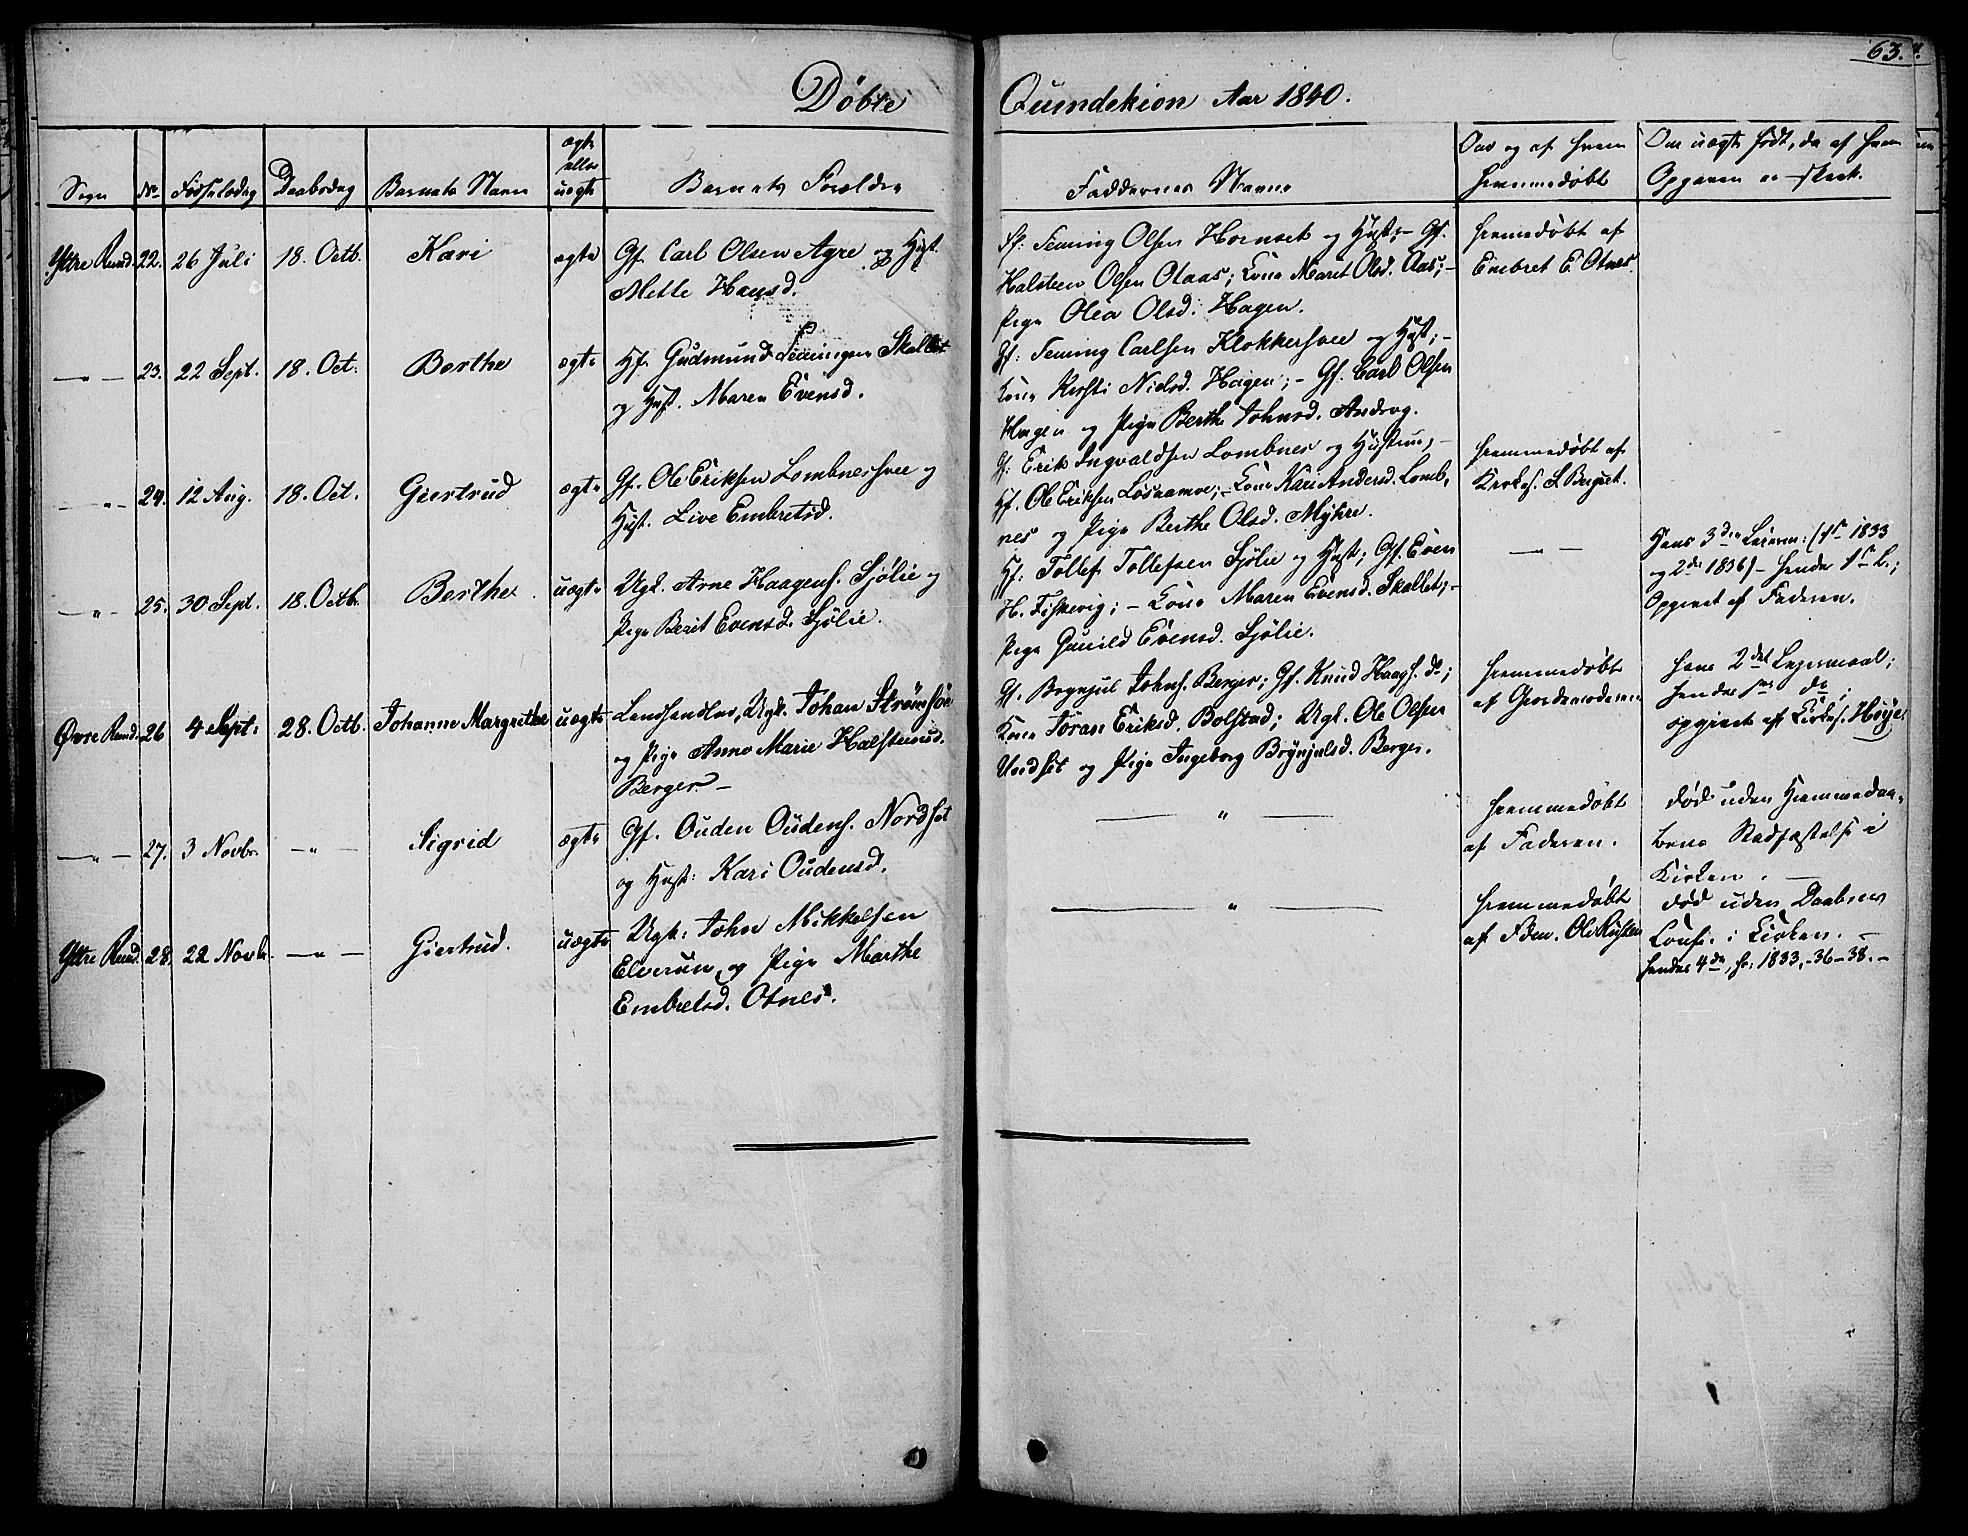 63.
Døbte
Qvindekiøn Aar 1840.
Sogn
No
Fødselsdag
Daabsdag
Barnets Navn
ægte
eller
uægte
Barnets Forældre
Faddernes Navne
Om og af hvem
hjemmedøbt
Om uægte født, da af hvem
Opgaven er skeet.
Yttre Rend. 22. 26 Juli 18. Octb. Kari ægte Gf. Carl Olsen Agre og Hust.
Mette Hansd.
Gf. Feming Olsen Hornset og Hust; - Gf.
Halsteen Olsen Olaas; Kone Marit Olsd. Aas; -
Pige Olea Olsd. Hagen.
hjemmedøbt af
Embret E. Otnes.
— " — 23. 22 Sept. 18. Oct. Berthe ægte Hf. Gudmund Femingsen Skallet
og Hust. Maren Evensd.
Gf: Feming Carlsen Klokkersvee og Hust; -
Kone Kersti Nielsd. Hagen; - Gf. Carl Olsen
Hagen og Pige Berthe Johnsd. Androg.
— " — 24. 12 Aug. 18. Oct. Giertrud ægte Gf. Ole Eriksen Lombnessvee og
Hust. Live Embretsd.
Gf: Erik Ingvaldsen Lombnes og Hustrue; -
Hf. Ole Eriksen Løsaamoe; - Kone Kari Andersd. Lomb,
nes og Pige Berthe Olsd. Myhre.
hjemmedøbt af
Kirkes. L. Berget.
— " — 25. 30 Sept. 18. Octb. Berthe uægte Ugk. Arne Haagens. Sjølie og
Pige Berit Evensd. Sjølie.
Hf: Tollef Tollefsen Sjølie og Hust; Gf. Even
H. Fiskevig; - Kone Maren Evensd. Skallet; -
Pige Gunild Evensd. Sjølie.
— " —
Hans 3die Leierm: (1ste 1833
og 2de 1836) - hendes 1ste L.;
Opgivet af Faderen.
Øvre Rend. 26 4 Sept. 28. Octb. Johanne Margrethe uægte Landhandler, Ugk. Johan Strømsøe
og Pige Anne Marie Halsteensd.
Berger -
Gf. Brynjul Johns. Berger; Gf. Knud Haags. do;
Kone Joran Eriksd. Bolstad; Ugk. Ole Olsen
Undset og Pige Ingeborg Brynjulsd. Berger.
hjemmedøbt
af Gjordemoderen
hans 2det Leiermaal;
hendes 1ste do;
opgivet af Kirkes. Høyer
— " — 27. 3 Novbr. — " — Sigrid ægte Gf. Ouden Oudens. Nordset
og Hust: Kari Oudensd.
— " —
hjemmedøbt
af Faderen.
død uden Hjemmedaa-
bens Stadfæstelse i
Kirken. -
Yttre Rend. 28. 22 Novbr. — " — Giertrud. uægte Ugk: John Mikkelsen
Elverum, og Pige Marthe
Embretsd. Otnes.
— " —
hjemmedøbt
af Fden. Ole Rusten
død uden Daabens
Conf. i Kirken. -
hendes 4de, fr: 1833, -36-38. -